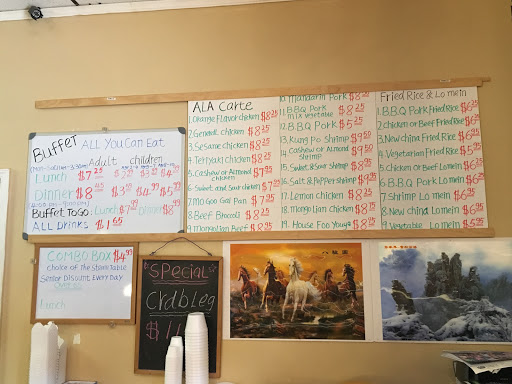 Buffet ALL You Can Eat
Adult children
Lunch $7.25
Dinner $8
Buffet To Go: Lunch $7.99 Dinner $8.99
ALL DRINKS $1.65
COMBO BOX $4.99
choice of the steam table
Senior Discount Every Day
Lunch
SPECIAL
Crab Leg
ALA Carte
1. Orange Flavor chicken $8.25
2. General chicken $8.25
3. Sesame chicken $8.25
4. Teriyaki chicken $8.25
5. Cashew or Almond chicken $7.95
6. Sweet and Sour chicken $7.95
7. Moo Goo Gai Pan $7.95
8. Beef Broccoli $8.25
9. Mongolian Beef
10. Mandarin Pork $8.25
11. BBQ Pork mix vegetable $8.25
12. B.B.Q Pork $5.25
13. Kung Po Shrimp $9.50
14. Cashew or Almond shrimp $9.50
15. Sweet & Sour Shrimp $8.95
16. Salt & Pepper shrimp $9.95
17. Lemon chicken $8.25
18. Mongolian chicken $8.25
19. House Foo Young $8.25
Fried Rice & Lo mein
1. B.B.Q Pork Fried Rice $6.25
2. chicken or Beef Fried Rice $6.25
3. New china Fried Rice $6.95
4. Vegetable Fried Rice $5.95
5. chicken or Beef Lo mein $6.95
6. B.B.Q Pork Lo mein $6.95
7. Shrimp Lo mein $6.95
8. New china Lo mein $6.95
9. Vegetable Lo mein $5.95